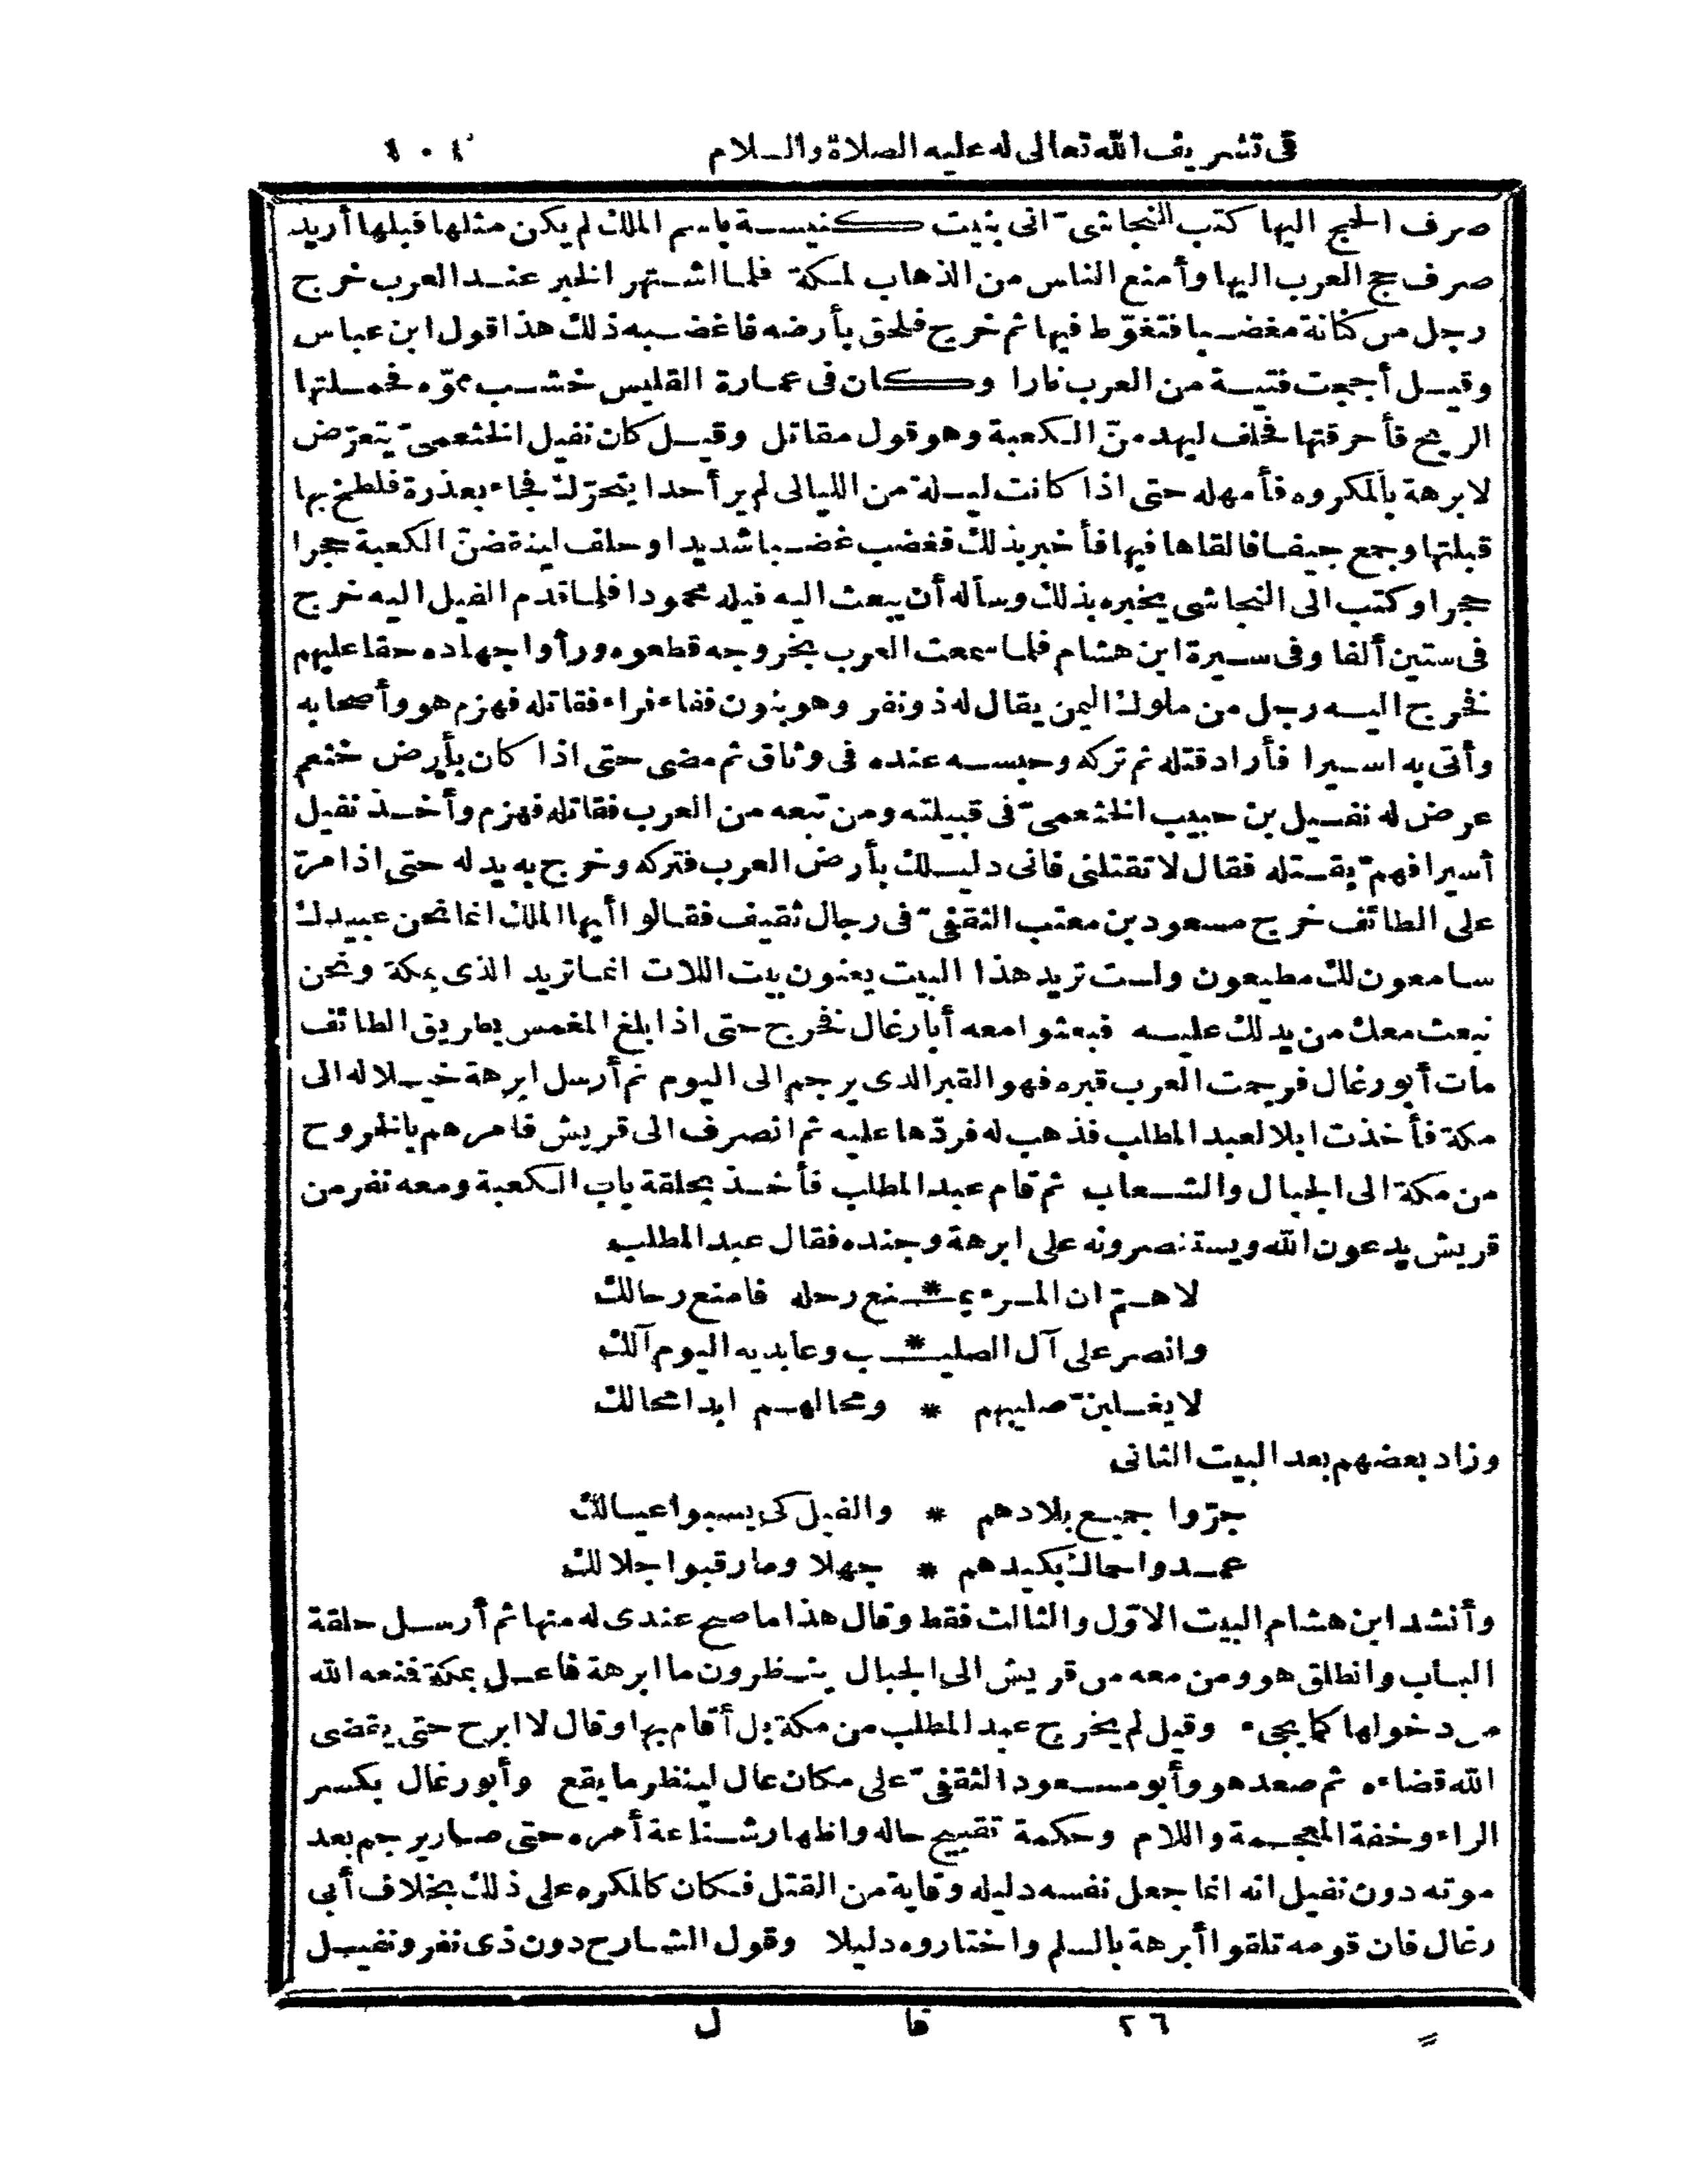 فى تشريف الله تعالى له عليه الصلاة والسلام ١٠١
صرف الحج اليها كتب النجاشىّ انى بنيت كنيسة باسم الملك لم يكن مثلها قبلها أريد
صرف حج العرب اليها وأمنع الناس من الذهاب لمكة فلما اشتهر الخبر عند العرب خرج
رجل من كنانة مغضبا فتغوّط فيها ثم خرج فلحق بأرضه فاغضبه ذلك هذا قول ابن عباس
وقيل أججت فتية من العرب نارا وكان فى عمارة القليس خشب مموّه فحملتها
الريح فأحرقتها فحلف ليهدمنّ الكعبة وهو قول مقاتل وقيل كان نفيل الخثعمىّ يتعرّض
لابرهة بالمكروه فأمهله حتى اذا كانت ليلة من الليالى لم ير أحدا يتحرّك فجاء بعذرة فلطخ بها
قبلتها وجمع جيفا فالقاها فيها فأخبر بذلك فغضب غضبا شديدا وحلف لينقضنّ الكعبة حجرا
حجرا وكتب الى النجاشى يخبره بذلك وسأله أن يبعث اليه فيله محمودا فلما قدم الفيل اليه خرج
فى ستين ألفا وفى سيرة ابن هشام فلما سمعت العرب بخروجه قطعوه ورأوا جهاده حقا عليهم
فخرج اليه رجل من ملوك اليمن يقال له ذو نفر وهو بنون ففاء فراء فقاتله فهزم هو وأصحابه
وأتى به اسيرا فأراد قتله ثم تركه وحبسه عنده فى وثاق ثم مضى حتى اذا كان بأرض خثعم
عرض له نفيل بن حبيب الخثعمىّ فى قبيلته ومن تبعه من العرب فقاتله فهزم وأخذ نفيل
أسيرا فهمّ بقتله فقال لا تقتلنى فانى دليلك بأرض العرب فتركه وخرج به يدله حتى اذا مرّ
على الطائف خرج مسعود بن معتب الثقفىّ فى رجال ثقيف فقالوا أيها الملك انما نحن عبيدك
سامعون لك مطيعون ولست تريد هذا البيت يعنون بيت اللات انما تريد الذى بمكة ونحن
نبعث معك من يدلك عليه فبعثوا معه أبا رغال فخرج حتى اذا بلغ المغمس بطريق الطائف
مات أبو رغال فرجمت العرب قبره فهو القبر الذى يرجم الى اليوم ثم أرسل ابرهة خيلا له الى
مكة فأخذت ابلا لعبد المطلب فذهب له فردّها عليه ثم انصرف الى قريش فامرهم بالخروج
من مكة الى الجبال والشعاب ثم قام عبد المطلب فأخذ بحلقة باب الكعبة ومعه نفر من
قريش يدعون الله ويستنصرونه على ابرهة وجنده فقال عبد المطلب
لاهمّ ان المرء يمـ * ـنع رحله فامنع رحالك
وانصر على آل الصليـ * ـب وعابديه اليوم آلك
لا يغلبنّ صليبهم * ومحالهم ابدا محالك
وزاد بعضهم بعد البيت الثانى
جرّوا جميع بلادهم * والفيل كى يسبوا عيالك
عمدوا حماك بكيدهم * جهلا وما رقبوا جلالك
وأنشد ابن هشام البيت الاوّل والثالث فقط وقال هذا ما صح عندى له منها ثم أرسل حلقة
الباب وانطلق هو ومن معه من قريش الى الجبال ينظرون ما ابرهة فاعل بمكة فنعه الله
من دخولها كما يجىء وقيل لم يخرج عبد المطلب من مكة بل أقام بها وقال لا ابرح حتى يقضى
الله قضاءه ثم صعد هو وأبو مسعود الثقفىّ على مكان عال لينظر ما يقع وأبو رغال بكسر
الراء وخفة المعجمة واللام وحكمة تقبيح حاله واظهار شناعة أمره حتى صار يرجم بعد
موته دون نفيل انه انما جعل نفسه دليله وقاية من القتل فكان كالمكره على ذلك بخلاف أبى
رغال فان قومه تلقوا أبرهة بالسلم واختاروه دليلا وقول الشارح دون ذى نفر ونفيل
٢٦ قا ل